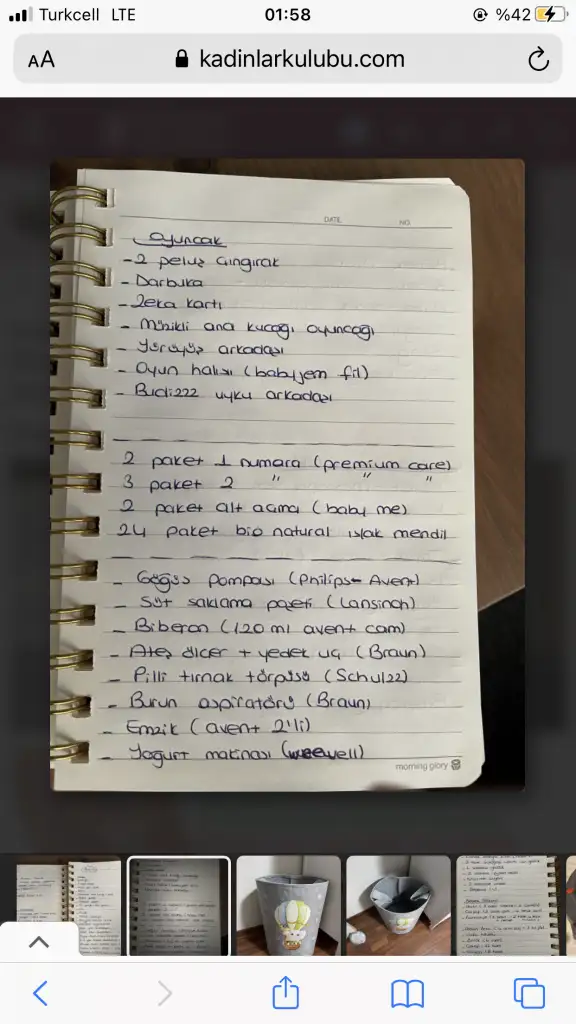 Turkcell LTE 01:58 %42
AA kadinlarkulubu.com
DATE NO
Oyuncak
-2 peluş çıngırak
-Darbuka
-Zeka kartı
- Müzikli ana kucağı oyuncağı
- Yürüyüş arkadaşı
- Oyun halısı (babyjem fil)
- Budizzz uyku arkadaşı
2 paket 1 numara (premium care)
3 paket 2 " " "
2 paket alt açma (baby me)
24 paket bio natural ıslak mendil
- Göğüs pompası (Philips-Avent)
- Süt saklama poşeti (Lansinoh)
- Biberon (120 ml avent cam)
- Ateş ölçer + yedek uç (Braun)
- Pilli tırnak törpüsü (Schulzz)
- Burun aspiratörü (Braun)
- Emzik (avent 2'li)
- Yogurt makinası (weewell)
morning glory